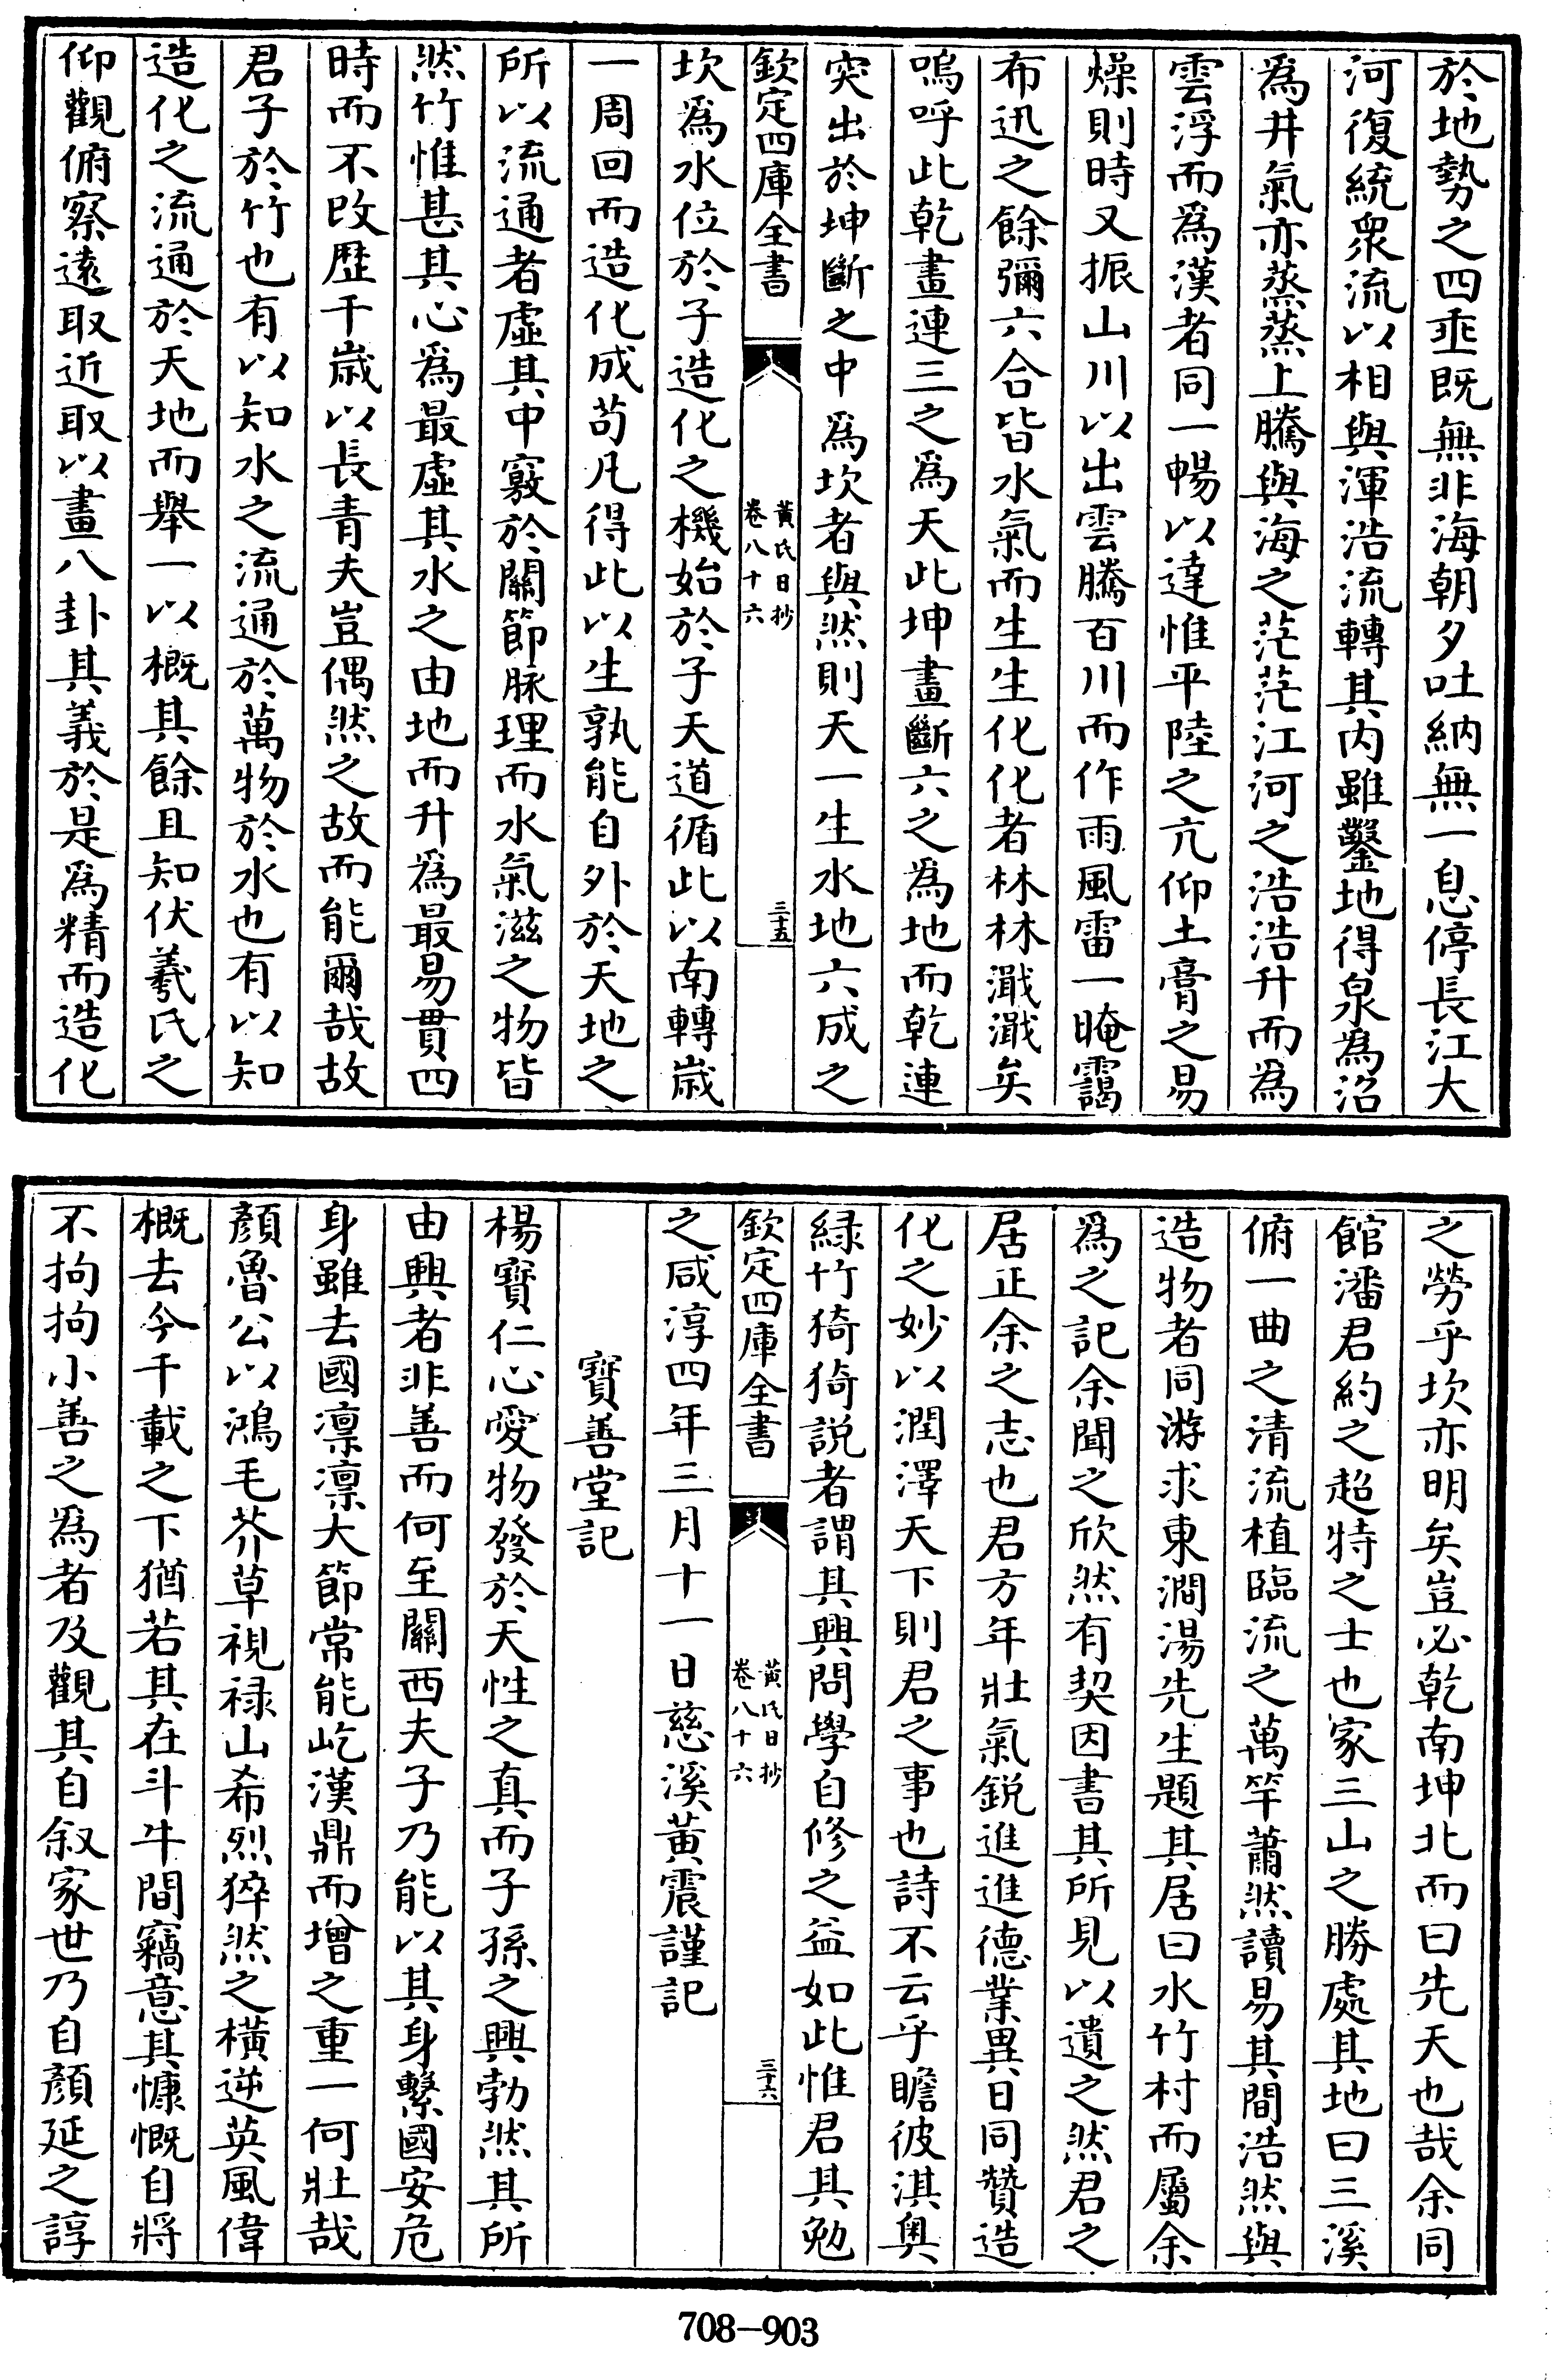 於地勢之四垂既無非海朝夕吐納無一息停長江大
河復統衆流以相與渾浩流轉其内雖鑿地得泉為沼
為井氣亦蒸蒸上騰與海之茫茫江河之浩浩升而為
雲浮而為漢者同一暢以達惟平陸之亢仰土膏之易
燥則時又振山川以出雲騰百川而作雨風雷一晻靄
布迅之餘彌六合皆水氣而生生化化者林林濈濈矣
嗚呼此乾畫連三之為天此坤畫斷六之為地而乾連
突出於坤斷之中為坎者與然則天一生水地六成之
欽定四庫全書
黄氏日抄
卷八十六
三十五
坎為水位於子造化之機始於子天道循此以南轉歳
一周回而造化成茍凡得此以生孰能自外於天地之
所以流通者虛其中竅於關節脉理而水氣滋之物皆
然竹惟甚其心為最虛其水之由地而升為最易貫四
時而不改歴千歳以長青夫豈偶然之故而能爾哉故
君子於竹也有以知水之流通於萬物於水也有以知
造化之流通於天地而舉一以概其餘且知伏羲氏之
仰觀俯察遠取近取以畫八卦其義於是為精而造化
之勞乎坎亦明矣豈必乾南坤北而曰先天也哉余同
館潘君約之超特之士也家三山之勝處其地曰三溪
俯一曲之清流植臨流之萬竿蕭然讀易其間浩然與
造物者同游求東澗湯先生題其居曰水竹村而屬余
為之記余聞之欣然有契因書其所見以遺之然君之
居正余之志也君方年壯氣鋭進進德業異日同贊造
化之妙以潤澤天下則君之事也詩不云乎瞻彼淇奥
緑竹猗猗説者謂其興問學自修之益如此惟君其勉
欽定四庫全書
黄氏日抄
卷八十六
三十六
之咸淳四年三月十一日慈溪黄震謹記
寳善堂記
楊寳仁心愛物發於天性之真而子孫之興勃然其所
由興者非善而何至關西夫子乃能以其身繫國安危
身雖去國凛凛大節常能屹漢鼎而增之重一何壯哉
顔魯公以鴻毛芥草視禄山希烈猝然之橫逆英風偉
概去今千載之下猶若其在斗牛間竊意其慷慨自將
不拘拘小善之為者及觀其自叙家世乃自顔延之諄
708-903